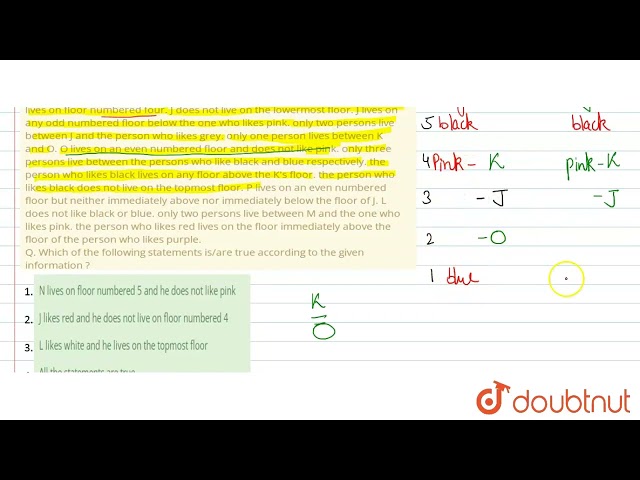 lives on floor numbered four. J does not live on the lowermost floor. J lives on
any odd numbered floor below the one who likes pink. only two persons live
between J and the person who likes grey. only one person lives between K
and O. O lives on an even numbered floor and does not like pink. only three
persons live between the persons who like black and blue respectively. the
person who likes black lives on any floor above the K's floor. the person who
likes black does not live on the topmost floor. P lives on an even numbered
floor but neither immediately above nor immediately below the floor of J. L
does not like black or blue. only two persons live between M and the one who
likes pink. the person who likes red lives on the floor immediately above the
floor of the person who likes purple.
Q. Which of the following statements is/are true according to the given
information ?
1. N lives on floor numbered 5 and he does not like pink
2. J likes red and he does not live on floor numbered 4
3. L likes white and he lives on the topmost floor
All the statements are true
K
O
5 black black
4 Pink - K pink-K
3 - J - J
2 - O
1 blue
doubtnut